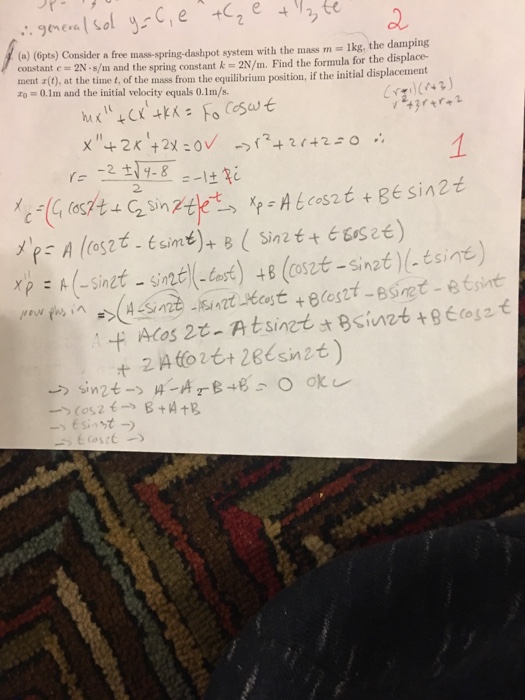 ∴ general sol y = C₁e +C₂ e + 1/3 te
2
(a) (6pts) Consider a free mass-spring-dashpot system with the mass m = 1kg, the damping
constant c = 2N·s/m and the spring constant k = 2N/m. Find the formula for the displace-
ment x(t), at the time t, of the mass from the equilibrium position, if the initial displacement
x₀ = 0.1m and the initial velocity equals 0.1m/s.
mx'' + cx' + kx = F₀ cosωt
r²+3r+r+2
x'' + 2x' + 2x = 0 ✓ → r² + 2r + 2 = 0 ∴
1
r = -2 ± √4-8 / 2 = -1 ± i
x_c = (C₁ cos t + C₂ sin t)e^-t → x_p = At cos2t + Bt sin2t
x'p = A (cos2t - t sin2t) + B ( sin2t + t cos2t)
x''p = A(-sin2t - sin2t)(-tcost) + B (cos2t - sin2t)(-tsint)
now plug in => (A-sin2t - Asin2t - tcost + Bcos2t - Bsin2t - Btsint
+ Acos 2t - At sin2t + Bsin2t + Bt cos2t
+ 2Atcos2t + 2Bt sin2t)
→ sin2t → A - A - B + B = 0 ok ✓
→ cos2t → B + A + B
→ t sin2t →
→ t cos2t →